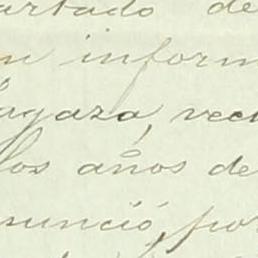 artado de
un inform
agaza, veci
los años de
nunció, por